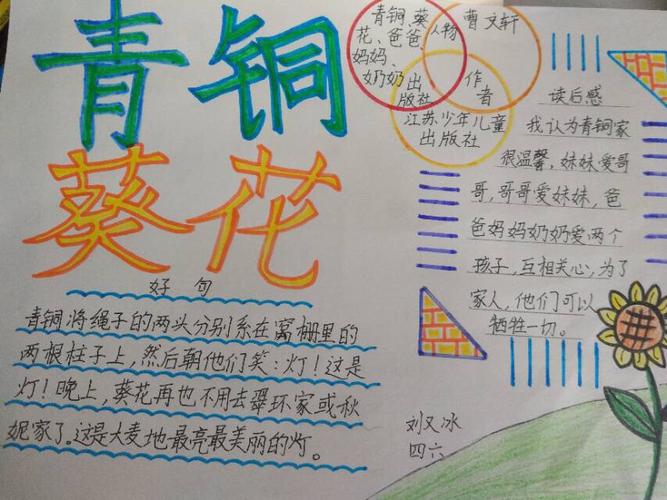 青铜
葵花
青铜、葵
花、爸爸、
妈妈、
奶奶
人物
曹文轩
作
者
出
版社
江苏少年儿童
出版社
读后感
我认为青铜家
很温馨,妹妹爱哥
哥,哥哥爱妹妹,爸
爸妈妈奶奶爱两个
孩子,互相关心,为了
家人,他们可以
牺牲一切。
好句
青铜将绳子的两头分别系在窝棚里的
两根柱子上,然后朝他们笑:灯!这是
灯!晚上,葵花再也不用去翠环家或秋
妮家了。这是大麦地最亮最美丽的灯。
刘又冰
四六